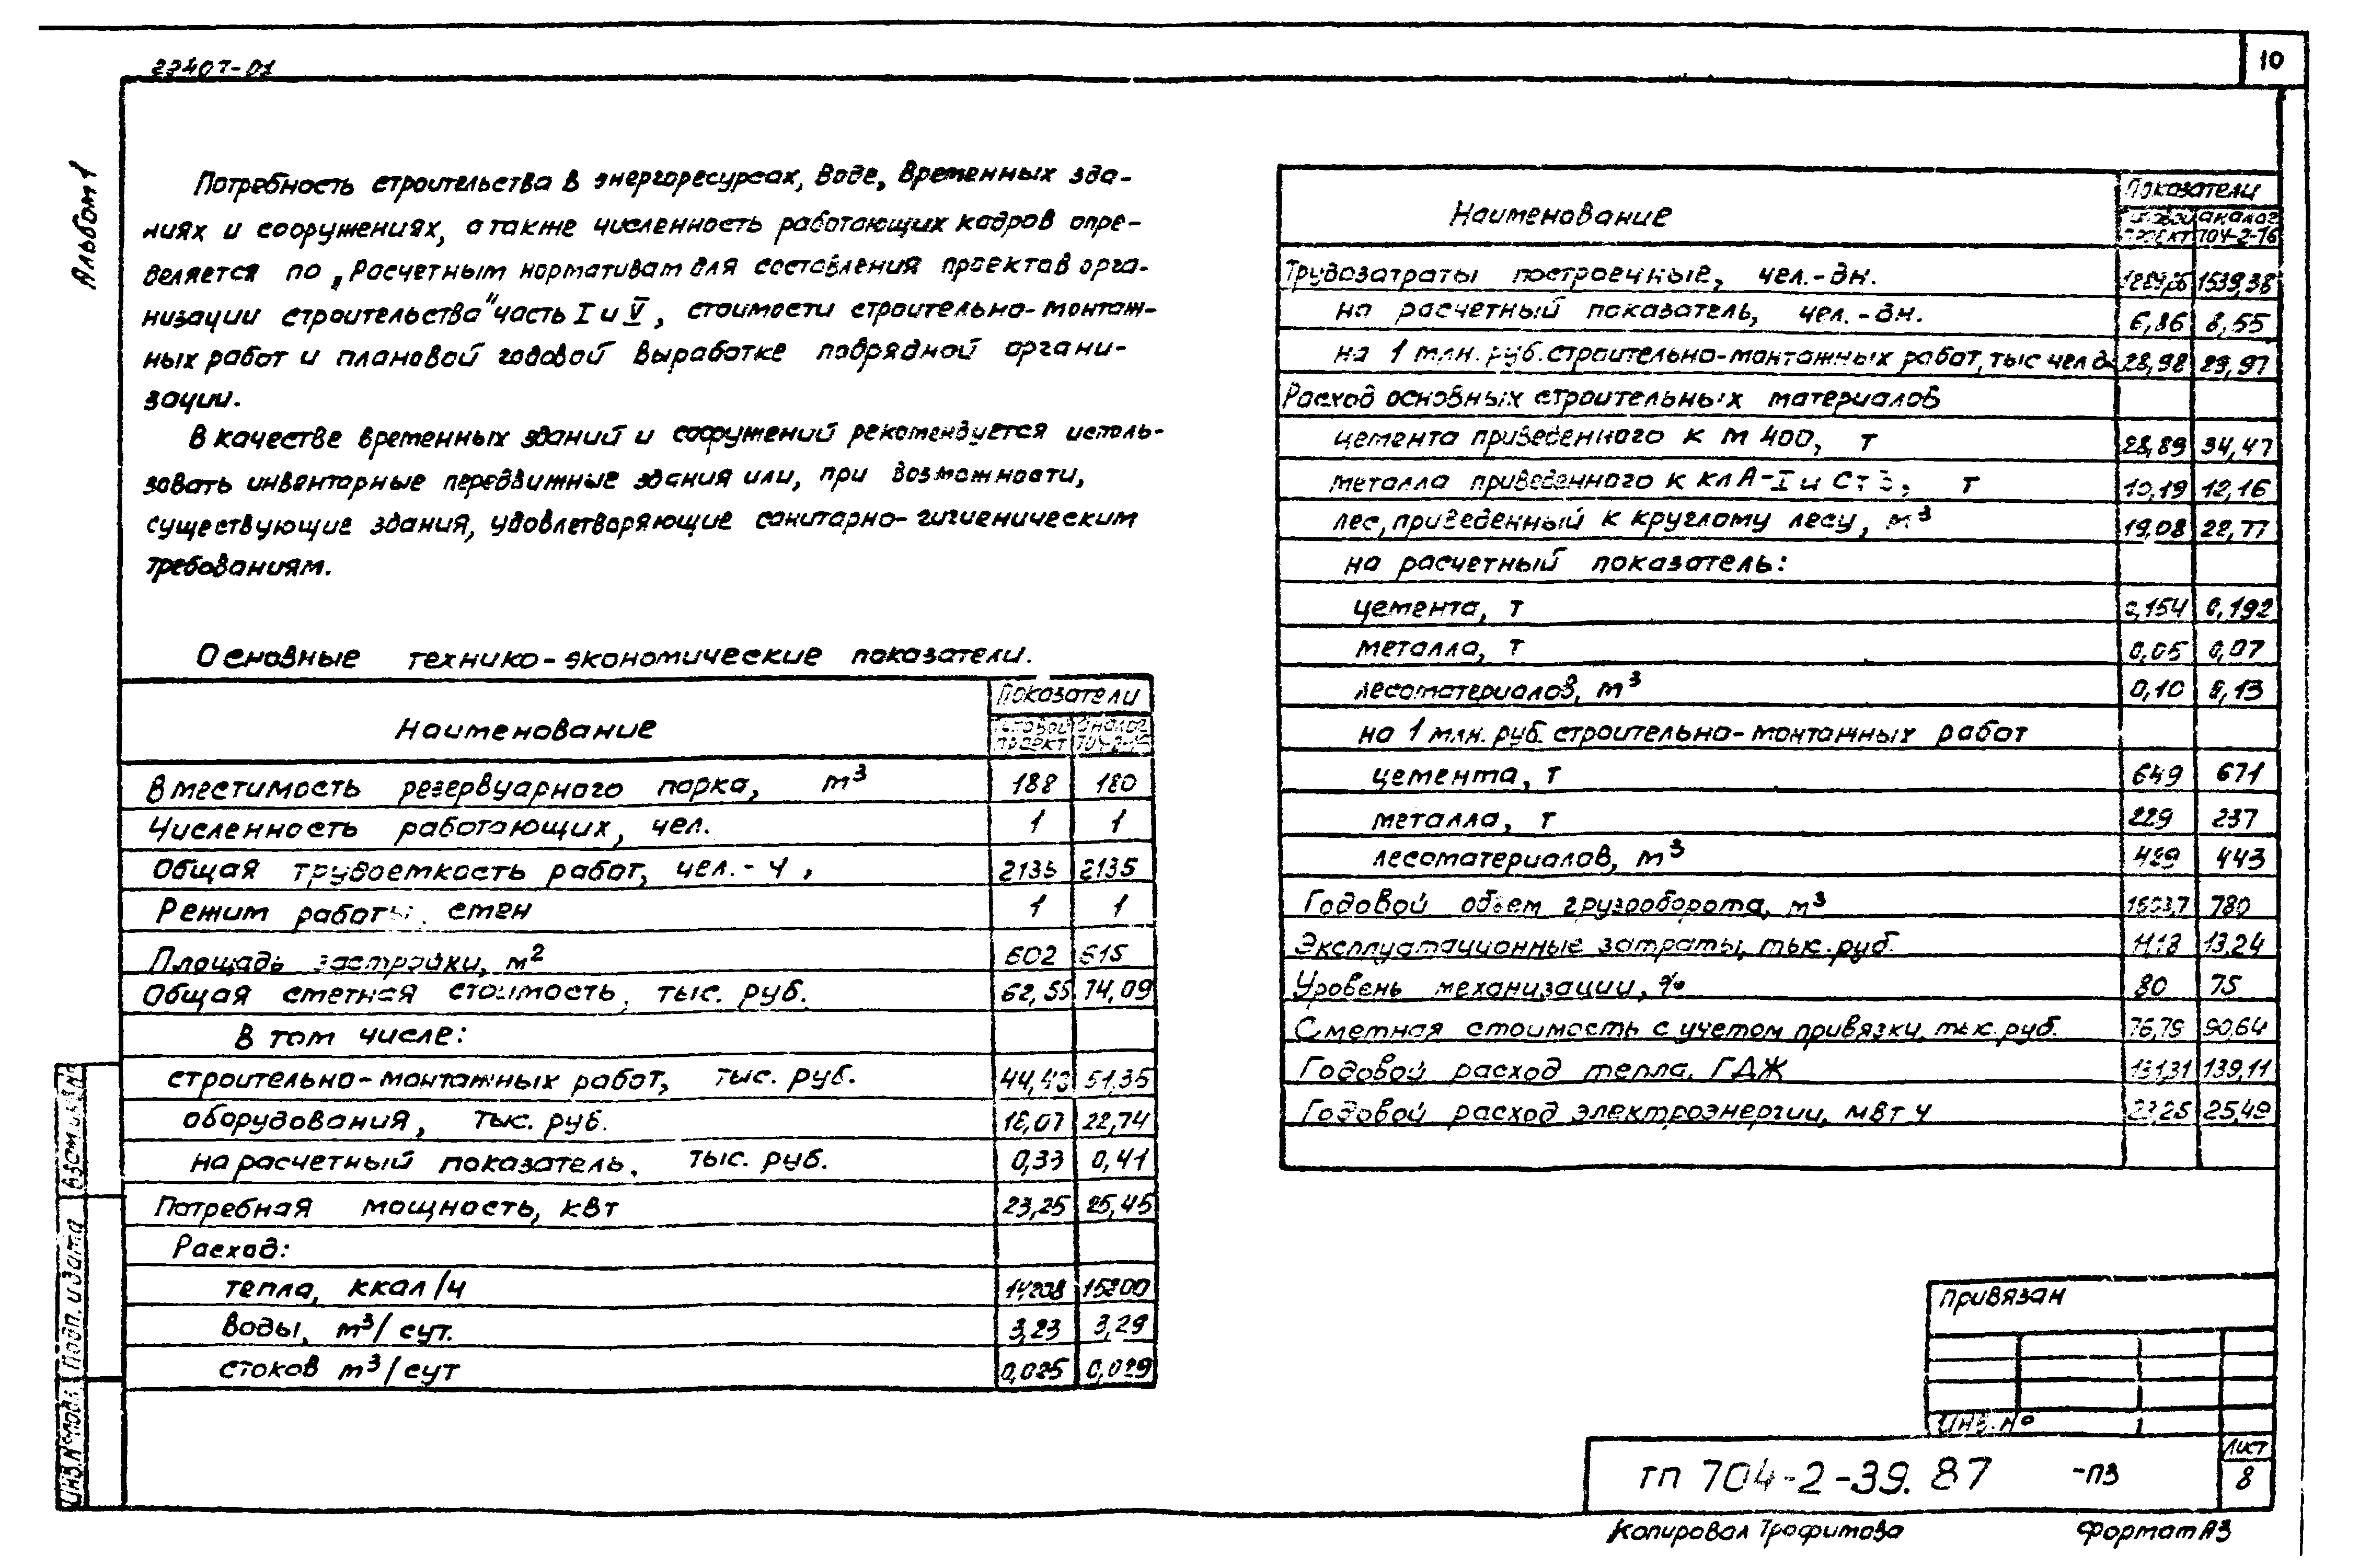 22407-01
10
Альбом 1
Потребность строительства в энергоресурсах, воде, временных зда-
ниях и сооружениях, а также численность работающих кадров опре-
деляется по „Расчетным нормативам для составления проектов орга-
низации строительства" часть I и V, стоимости строительно-монтаж-
ных работ и плановой годовой выработке подрядной органи-
зации.
В качестве временных зданий и сооружений рекомендуется исполь-
зовать инвентарные передвижные здания или, при возможности,
существующие здания, удовлетворяющие санитарно-гигиеническим
требованиям.
Основные технико-экономические показатели.
Наименование Показатели
Типовой проект Аналог 704-2-16
Вместимость резервуарного парка, м³ 188 180
Численность работающих, чел. 1 1
Общая трудоемкость работ, чел.-ч, 2135 2135
Режим работы, смен 1 1
Площадь застройки, м² 602 615
Общая сметная стоимость, тыс. руб. 62,55 74,09
В том числе:
строительно-монтажных работ, тыс. руб. 44,48 51,35
оборудования, тыс. руб. 18,07 22,74
на расчетный показатель, тыс. руб. 0,33 0,41
Потребная мощность, кВт 23,25 25,45
Расход:
тепла, ккал/ч 14208 15200
воды, м³/сут. 3,23 3,29
стоков м³/сут 0,025 0,029
Наименование Показатели
Типовой проект Аналог 704-2-16
Трудозатраты построечные, чел.-дн. 1539,38
на расчетный показатель, чел.-дн. 6,86 8,55
на 1 млн. руб. строительно-монтажных работ, тыс чел д. 28,98 29,97
Расход основных строительных материалов
цемента приведенного к М 400, т 28,89 34,47
металла приведенного к кл А-I и Ст 3, т 10,19 12,16
лес, приведенный к круглому лесу, м³ 19,08 22,77
на расчетный показатель:
цемента, т 0,154 0,192
металла, т 0,05 0,07
лесоматериалов, м³ 0,10 0,13
на 1 млн. руб. строительно-монтажных работ
цемента, т 649 671
металла, т 229 237
лесоматериалов, м³ 429 443
Годовой объем грузооборота, м³ 780
Эксплуатационные затраты, тыс. руб. 11,18 13,24
Уровень механизации, % 80 75
Сметная стоимость с учетом привязки, тыс. руб. 76,79 90,64
Годовой расход тепла, ГДЖ 131,31 139,11
Годовой расход электроэнергии, мвт ч 23,25 25,49
Привязан
Инв. №
ТП 704-2-39.87 -ПЗ
Лист
8
Взам инв №
Подп. и дата
Инв. № подл.
Копировал Трофимова Формат А3